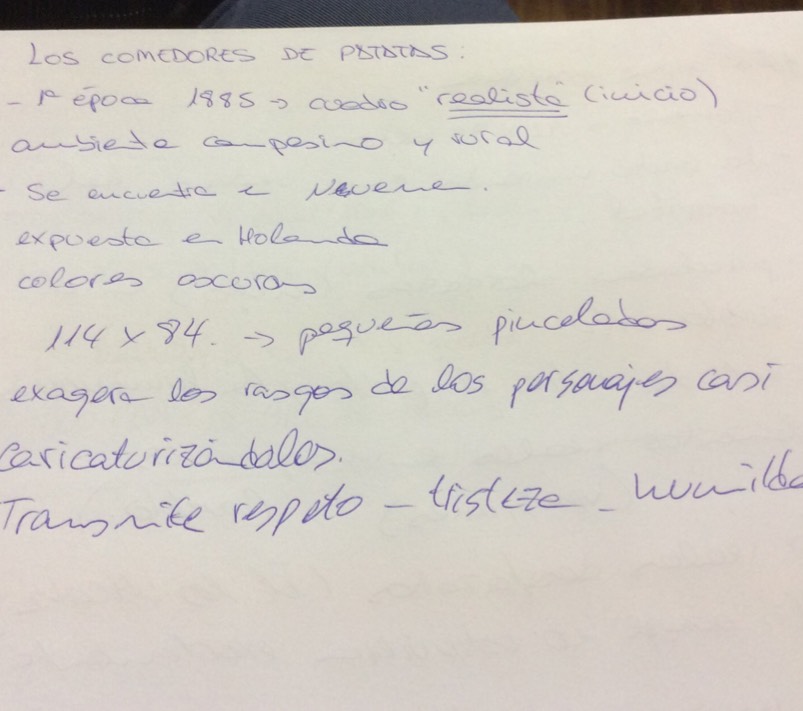 LOS COMEDORES DE PATATAS:
- 1ª época 1885 → cuadro "realista" (inicio)
ambiente campesino y rural
- Se encuentra e
expuesta en Holanda
colores oscuros
114 x 84. → pequeñas pinceladas
exagera los rasgos de los personajes casi
caricaturizándolos.
Transmite respeto - tristeza - humilda